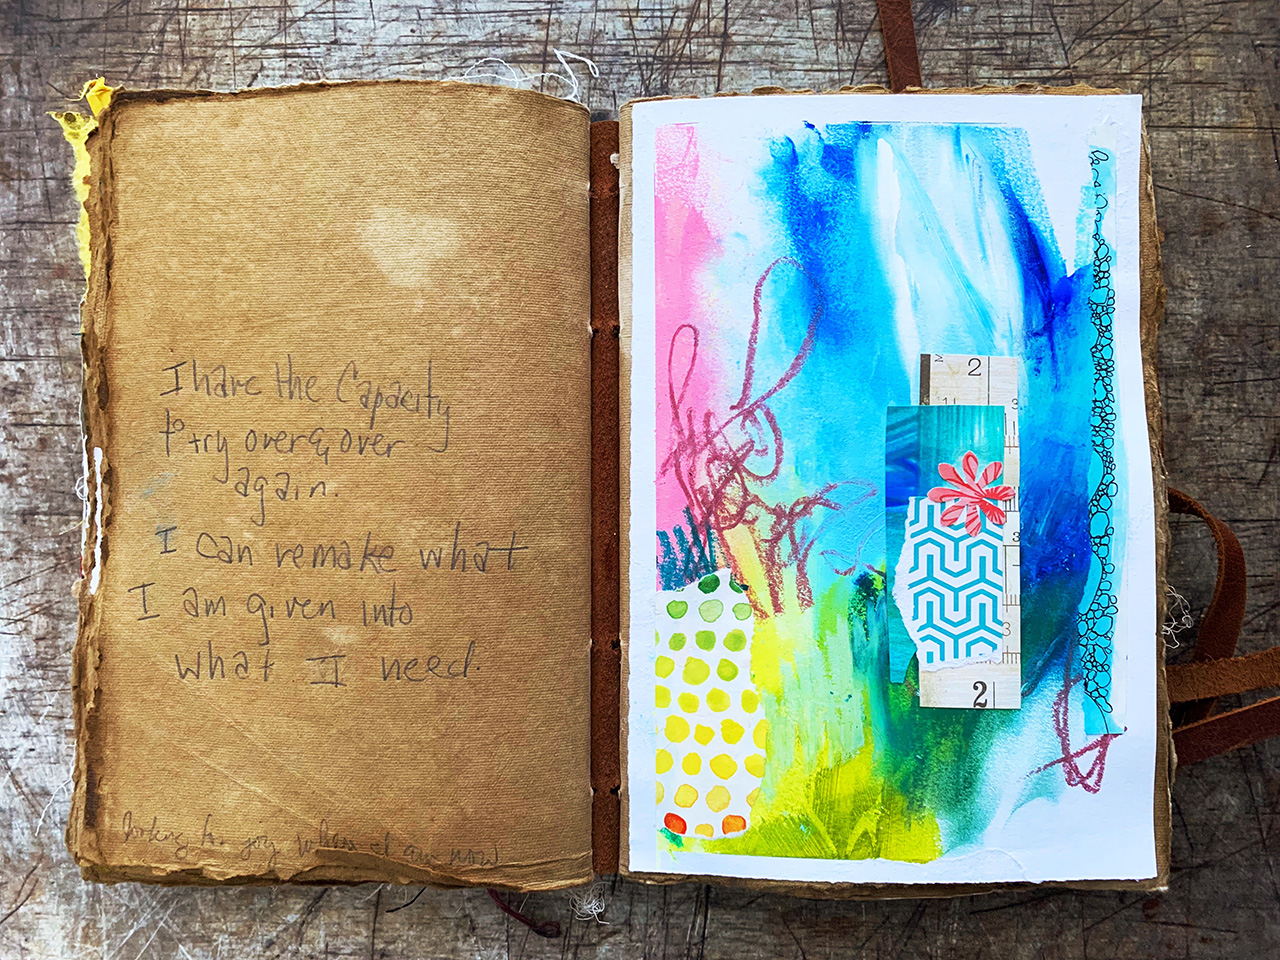 I have the Capacity
to try over & over
again.
I can remake what
I am given into
what I need.
looking for joy where I am now
2
3
3
3
2